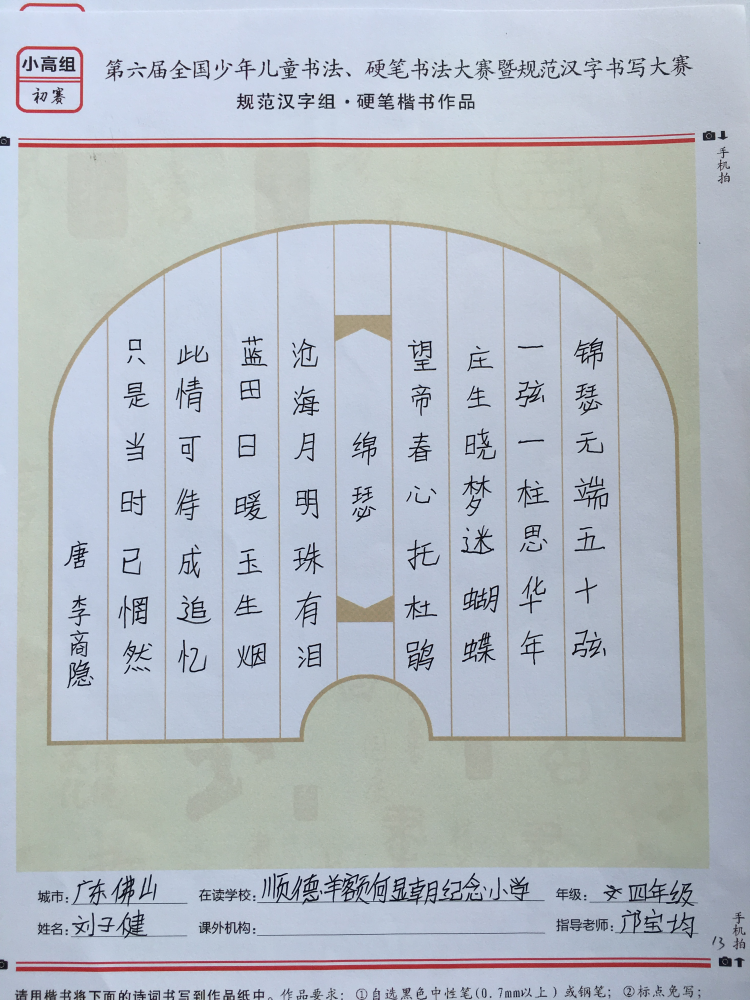 小高组
初赛
第六届全国少年儿童书法、硬笔书法大赛暨规范汉字书写大赛
规范汉字组·硬笔楷书作品
手机拍
锦瑟无端五十弦
一弦一柱思华年
庄生晓梦迷蝴蝶
望帝春心托杜鹃
绵瑟
沧海月明珠有泪
蓝田日暖玉生烟
此情可待成追忆
只是当时已惘然
唐 李商隐
城市: 广东佛山 在读学校: 顺德羊额何显朝纪念小学 年级: 四年级
姓名: 刘子健 课外机构: 指导老师: 邝宝均
13
手机拍
请用楷书将下面的诗词书写到作品纸中。作品要求: ①自选黑色中性笔(0.7mm以上)或钢笔; ②标点免写;